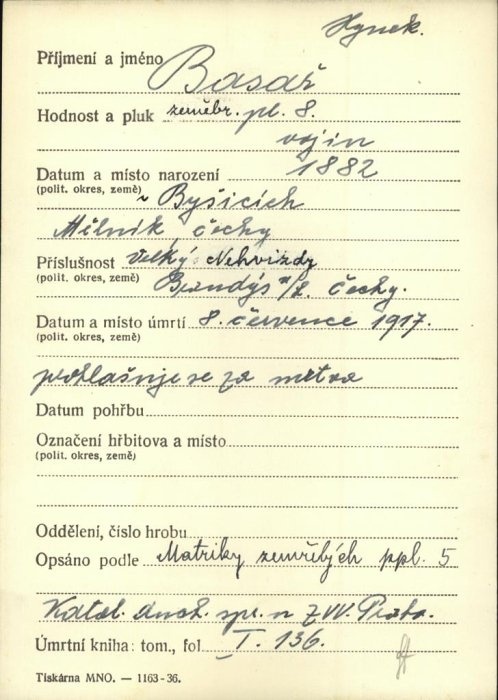 Hynek.
Příjmení a jméno Basař
Hodnost a pluk zeměbr. pl. 8.
vojín
Datum a místo narození 1882
(polit. okres, země) v Byšicích
Mělník, čechy
Příslušnost Velký Nehvizdy
(polit. okres, země) Brandýs n/L. čechy.
Datum a místo úmrtí 8. července 1917.
(polit. okres, země)
prohlašuje se za mrtva
Datum pohřbu
Označení hřbitova a místo
(polit. okres, země)
Oddělení, číslo hrobu
Opsáno podle Matriky zemřelých ppl. 5
Katol. duch. spr. n ZVV. Praha.
Úmrtní kniha: tom., fol I. 136.
Tiskárna MNO. — 1163-36.